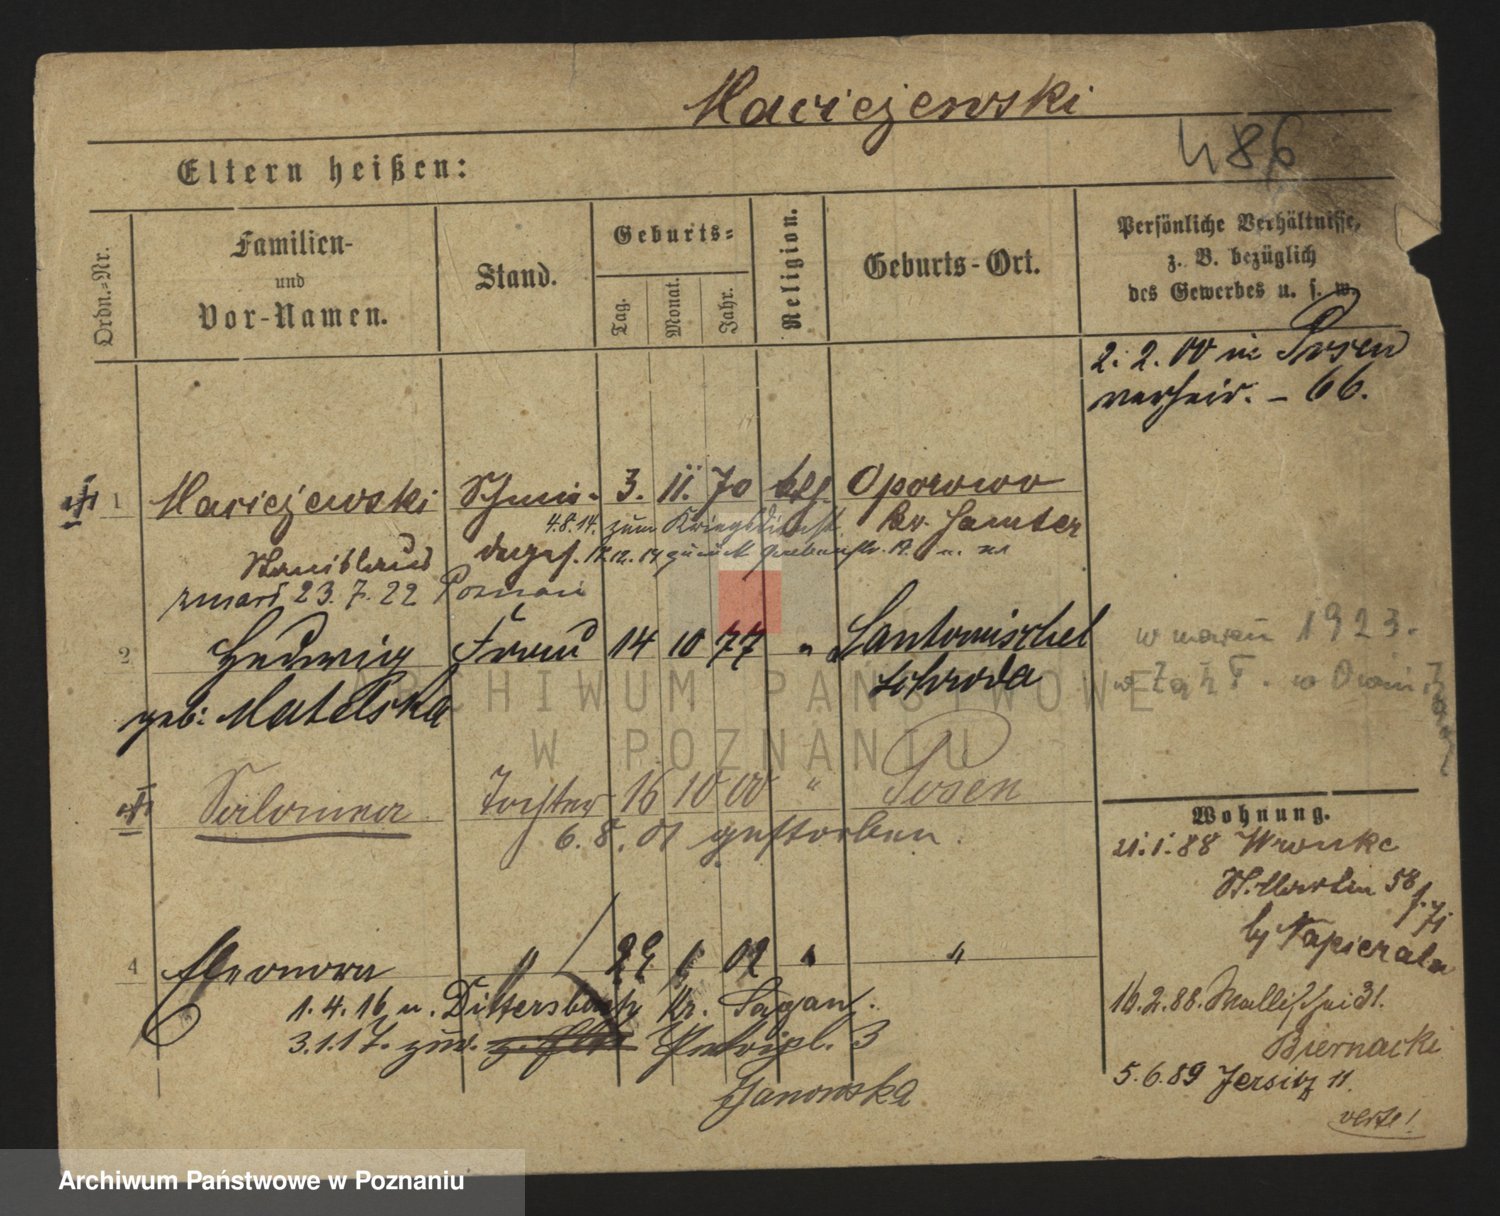 Maciejewski
486
Eltern heißen:
Ordn.-Nr.
Familien-
und
Vor-Namen.
Stand.
Geburts-
Tag.
Monat.
Jahr.
Religion.
Geburts-Ort.
Persönliche Verhältnisse,
z. B. bezüglich
des Gewerbes u. s. w.
2. 2. 00 in Posen
verheir. - 66.
1 Maciejewski 3. 11. 70 Oporowo
4.8.14. zum Kriegsdienst Kr. Samter
Stanislaus
zmarł 23. 7. 22 Poznań
2 Hedwig Frau 14 10 77 " Santomischel
Schroda
geb: Matelska
w 1923.
Salomea Tochter 16 10 00 " Posen
6. 8. 01 gestorben.
Wohnung.
21.1.88 Wronke
St. Martin 58
by Napierala
4 Eleonora " 22 1 02 " "
1. 4. 16 n. Dittersbach Kr. Sagan.
16.2.88. Wallischei 31.
3.1.17. zur. Petripl. 3
Biernacki
5.6.89 Jersitz 11.
Janowska
verte!
ARCHIWUM PAŃSTWOWE
W POZNANIU
Archiwum Państwowe w Poznaniu